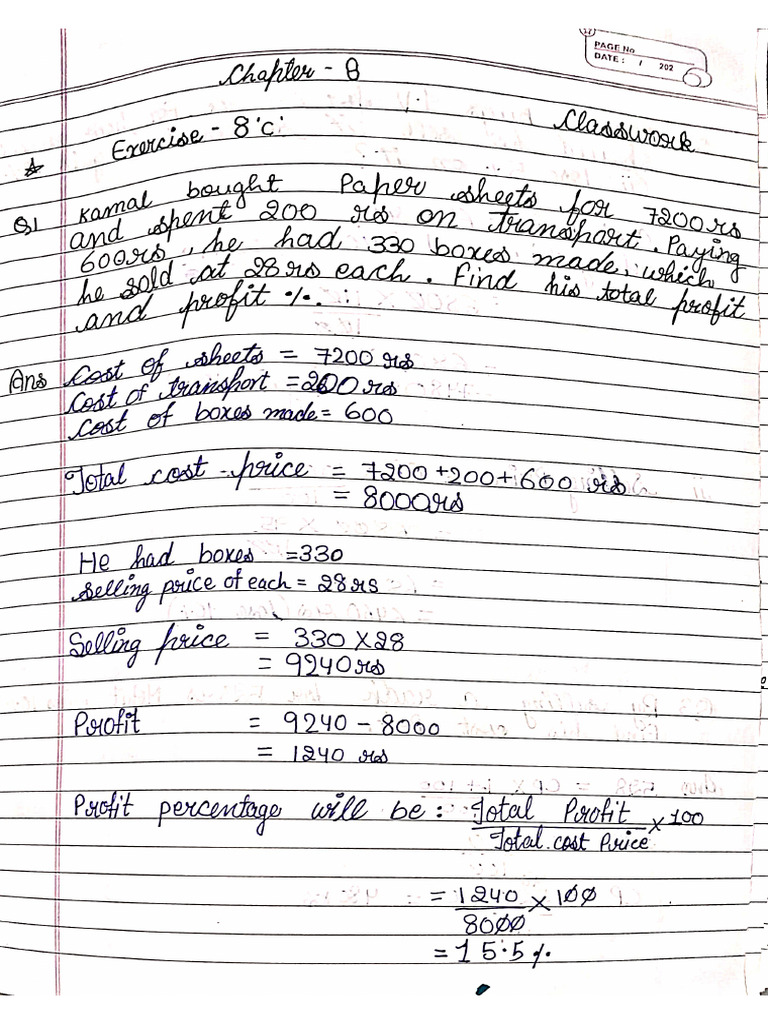 PAGE No
DATE: / 202
Chapter - 8
Classwork
Exercise - 8'c'
Q,1 Kamal bought Paper sheets for 7200rs
and spent 200 rs on transport. Paying
600rs, he had 330 boxes made, which
he sold at 28rs each. Find his total profit
and profit %.
Ans Cost of sheets = 7200 rs
Cost of transport = 200 rs
Cost of boxes made = 600
Total cost price = 7200 +200 +600 rs
= 8000rs
He had boxes =330
Selling price of each = 28rs
Selling price = 330 X 28
= 9240 rs
Profit = 9240 - 8000
= 1240 rs
Profit percentage will be : Total Profit × 100
Total cost Price
= 1240 × 100
8000
= 15.5 %